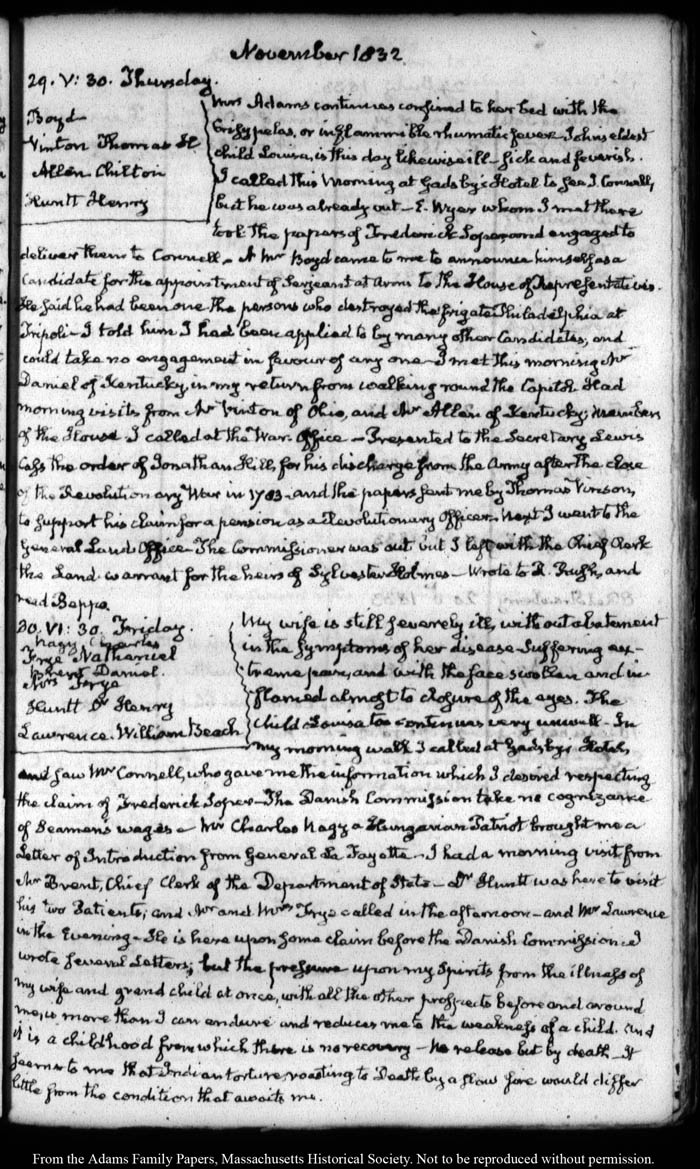 November 1832.
29. V: 30. Thursday.
Boyd
Vinton Thomas H
Allen Chilton
Huntt Henry
Mrs Adams continues confined to her bed with the
Erisypelas, or inflammible rhumatic fever. Johns eldest
child Louisa, is this day likewise ill— sick and feverish.
I called this Morning at Gadsby's Hotel to see J. Connell,
but he was already out— E. Wyer whom I met there
took the papers of Frederick Soper and engaged to
deliver them to Connell— A Mr Boyd came to me to announce himself as a
Candidate for the appointment of Serjeant at Arms to the House of Representatives.
He said he had been one the persons who destroyed the frigate Philadelphia at
Tripoli— I told him I had been applied to by many other Candidates, and
could take no engagement in favour of any one— I met this morning Mr
Daniel of Kentucky, in my return from walking round the Capitol. Had
morning visits from Mr Vinton of Ohio, and Mr Allen of Kentucky; members
of the House. I called at the War-Office— Presented to the Secretary Lewis
Cass the order of Jonathan Hill, for his discharge from the Army after the close
of the Revolutionary War in 1783— and the papers sent me by Thomas Vinson,
to support his claim for a pension as a Revolutionary Officer. Next I went to the
General Land Office— The Commissioner was out but I left with the Chief Clerk
the Land-warrant for the heirs of Sylvester Holmes— Wrote to R. Rush, and
read Beppo.
30. VI: 30. Friday.
Nagy Charles
Frye Nathaniel
Brent Daniel
Mrs Frye
Huntt Dr Henry
Lawrence. William Beach
My wife is still severely ill, without abatement
in the symptoms of her disease— suffering ex-
treme pain, and with the face swollen and in-
flamed almost to closure of the eyes. The
child Louisa too continues very unwell— In
my morning walk I called at Gadsby's Hotel,
and saw Mr Connell, who gave me the information which I desired respecting
the claim of Frederick Soper— The Danish Commission take no cognizance
of Seamen's wages— Mr Charles Nagy a Hungarian Patriot brought me a
Letter of Introduction from General La Fayette— I had a morning visit from
Mr Brent, Chief Clerk of the Department of State— Dr Huntt was here to visit
his two Patients; and Mr and Mrs Frye called in the afternoon— and Mr Lawrence
in the Evening— He is here upon some claim before the Danish Commission. I
wrote several Letters; but the pressure upon my Spirits from the illness of
my wife and grand child at once, with all the other prospects before and around
me, is more than I can endure and reduces me to the weakness of a child. And
it is a childhood from which there is no recovery— No release but by death— It
seems to me that Indian torture, roasting to Death by a slow fire would differ
little from the condition that awaits me.
From the Adams Family Papers, Massachusetts Historical Society. Not to be reproduced without permission.